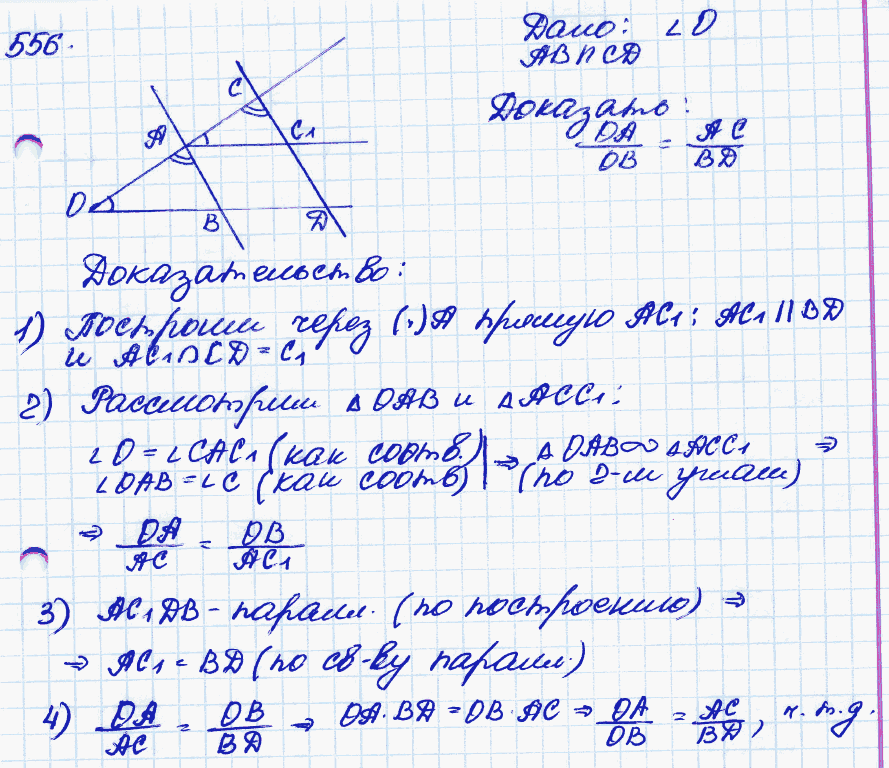 556.
Дано: ∠O
AB∩CD
Доказать:
OA/OB = AC/BD
A
C
C₁
O
B
D
Доказательство:
1) Построим через (·)A прямую AC₁: AC₁ || BD
и AC₁∩CD = C₁
2) Рассмотрим △OAB и △ACC₁:
∠O = ∠CAC₁ (как соотв.) | ⇒ △OAB∞△ACC₁ ⇒
∠OAB = ∠C (как соотв) | (по 2-м углам)
⇒ OA/AC = OB/AC₁
3) AC₁DB - паралл. (по построению) ⇒
⇒ AC₁ = BD (по св-ву паралл.)
4) OA/AC = OB/BD ⇒ OA·BD = OB·AC ⇒ OA/OB = AC/BD, ч.т.д.